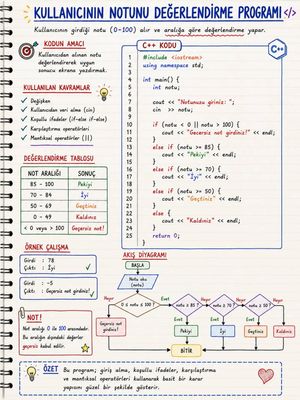 KULLANICININ NOTUNU DEĞERLENDİRME PROGRAMI </>
Kullanıcının girdiği notu (0-100) alır ve aralığa göre değerlendirme yapar.
KODUN AMACI
Kullanıcıdan alınan notu
değerlendirerek uygun
sonucu ekrana yazdırmak.
KULLANILAN KAVRAMLAR
✓ Değişken
✓ Kullanıcıdan veri alma (cin)
✓ Koşullu ifadeler (if-else if-else)
✓ Karşılaştırma operatörleri
✓ Mantıksal operatörler (||)
DEĞERLENDİRME TABLOSU
NOT ARALIĞI SONUÇ
85 - 100 Pekiyi
70 - 84 İyi
50 - 69 Geçtiniz
0 - 49 Kaldınız
< 0 veya > 100 Geçersiz not!
ÖRNEK ÇALIŞMA
Girdi : 78
Çıktı : İyi
Girdi : -5
Çıktı : Geçersiz not girdiniz!
NOT!
Not aralığı 0 ile 100 arasındadır.
Bu aralığın dışındaki değerler
geçersiz kabul edilir.
C++ KODU
C++
1 #include <iostream>
2 using namespace std;
3
4 int main() {
5 int notu;
6
7 cout << "Notunuzu giriniz: ";
8 cin >> notu;
9
10 if (notu < 0 || notu > 100) {
11 cout << "Gecersiz not girdiniz!" << endl;
12 }
13 else if (notu >= 85) {
14 cout << "Pekiyi" << endl;
15 }
16 else if (notu >= 70) {
17 cout << "İyi" << endl;
18 }
19 else if (notu >= 50) {
20 cout << "Geçtiniz" << endl;
21 }
22 else {
23 cout << "Kaldiniz" << endl;
24 }
25 return 0;
}
AKIŞ DİYAGRAMI
BAŞLA
Notu oku
(notu)
0 ≤ notu ≤ 100 ?
Evet
notu ≥ 85 ?
Hayır
notu ≥ 70 ?
Hayır
notu ≥ 50 ?
Hayır
Hayır
Evet
Evet
Evet
Geçersiz not
girdiniz!
Pekiyi
İyi
Geçtiniz
Kaldınız
BİTİR
ÖZET
Bu program; giriş alma, koşullu ifadeler, karşılaştırma
ve mantıksal operatörleri kullanarak basit bir karar
yapısını güzel bir şekilde gösterir.